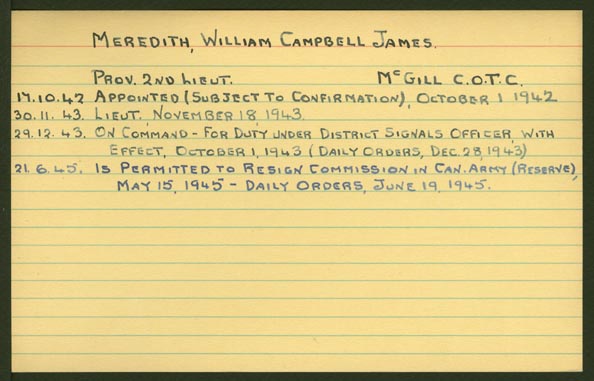 MEREDITH, WILLIAM CAMPBELL JAMES.
PROV. 2ND LIEUT. McGILL C.O.T.C.
17.10.42 APPOINTED (SUBJECT TO CONFIRMATION), OCTOBER 1 1942
30.11.43. LIEUT, NOVEMBER 18, 1943.
29.12.43. ON COMMAND - FOR DUTY UNDER DISTRICT SIGNALS OFFICER, WITH
EFFECT, OCTOBER 1, 1943 (DAILY ORDERS, DEC. 28, 1943)
21.6.45. IS PERMITTED TO RESIGN COMMISSION IN CAN. ARMY (RESERVE),
MAY 15, 1945 - DAILY ORDERS, JUNE 19, 1945.